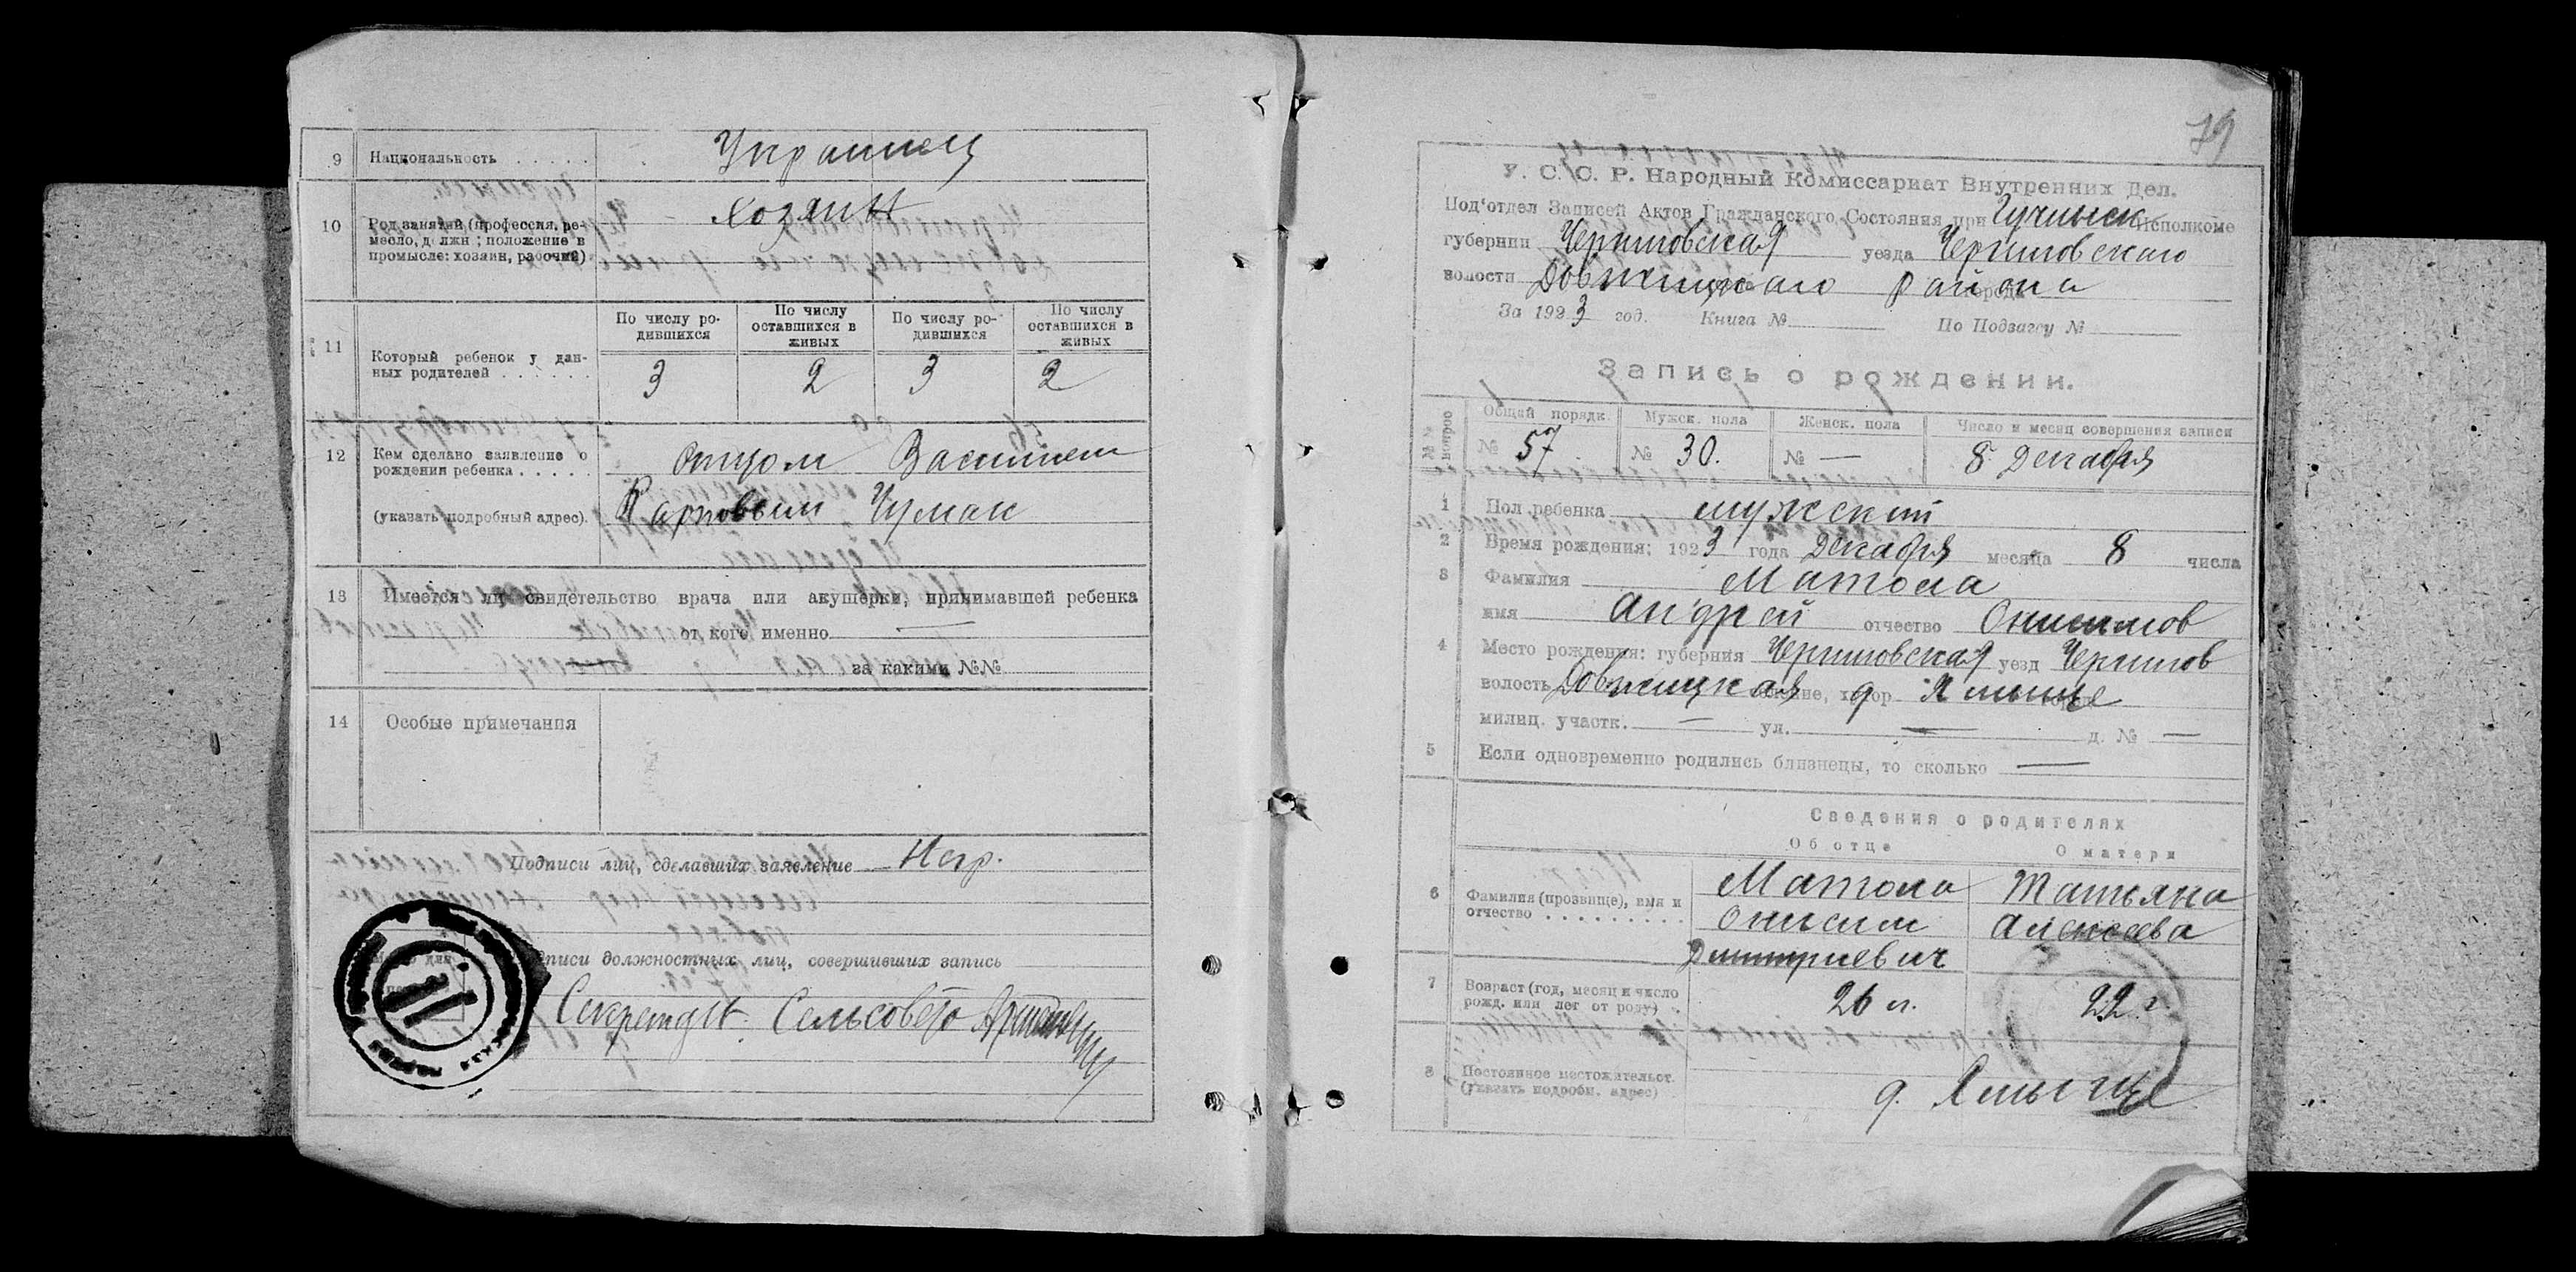 9 Национальность . . . . . Украинец
10 Род занятий (профессия, ре-
месло, должн; положение в
промысле: хозяин, рабочий)
Хозяин
По числу ро-
дившихся
По числу
оставшихся в
живых
По числу ро-
дившихся
По числу
оставшихся в
живых
11 Который ребенок у дан-
ных родителей . . . . . .
3 2 3 2
12 Кем сделано заявление о
рождении ребенка . . . . .
(указать подробный адрес).
отцом Василием
Карповым Чумак
13 Имеется ли свидетельство врача или акушерки, принимавшей ребенка
от кого именно —
за какими №№
14 Особые примечания
Подписи лиц, сделавших заявление Негр.
дписи должностных лиц, совершивших запись
Секретарь Сельсовета
79
У. С. С. Р. Народный Комиссариат Внутренних Дел.
Под'отдел Записей Актов Гражданского Состояния при Гучинск исполкоме
губернии Черниговская уезда Черниговскаго
волости Довжицкаго района
За 1923 год. Книга № По Подзагсу №
Запись о рождении.
№№ вопрос
Общий порядк. Мужск. пола Женск. пола Число и месяц совершения записи
№ 57 № 30. № — 8 Декабря
1 Пол ребенка мужский
2 Время рождения: 1923 года Декабря месяца 8 числа
3 Фамилия Матола
имя Андрей отчество Онисимов
4 Место рождения: губерния Черниговская уезд Чернигов
волость Довжицкая хутор д. Ямище
милиц. участк. — ул. — д. № —
5 Если одновременно родились близнецы, то сколько —
Сведения о родителях
Об отце О матери
6 Фамилия (прозвище), имя и
отчество . . . . . . . . . .
Матола
Онисим
Дмитриевич
Татьяна
Алексеева
7 Возраст (год, месяц и число
рожд. или лет от роду)
26 л. 22 г.
8 Постоянное местожительст.
(указать подробн. адрес)
д. Ямыще